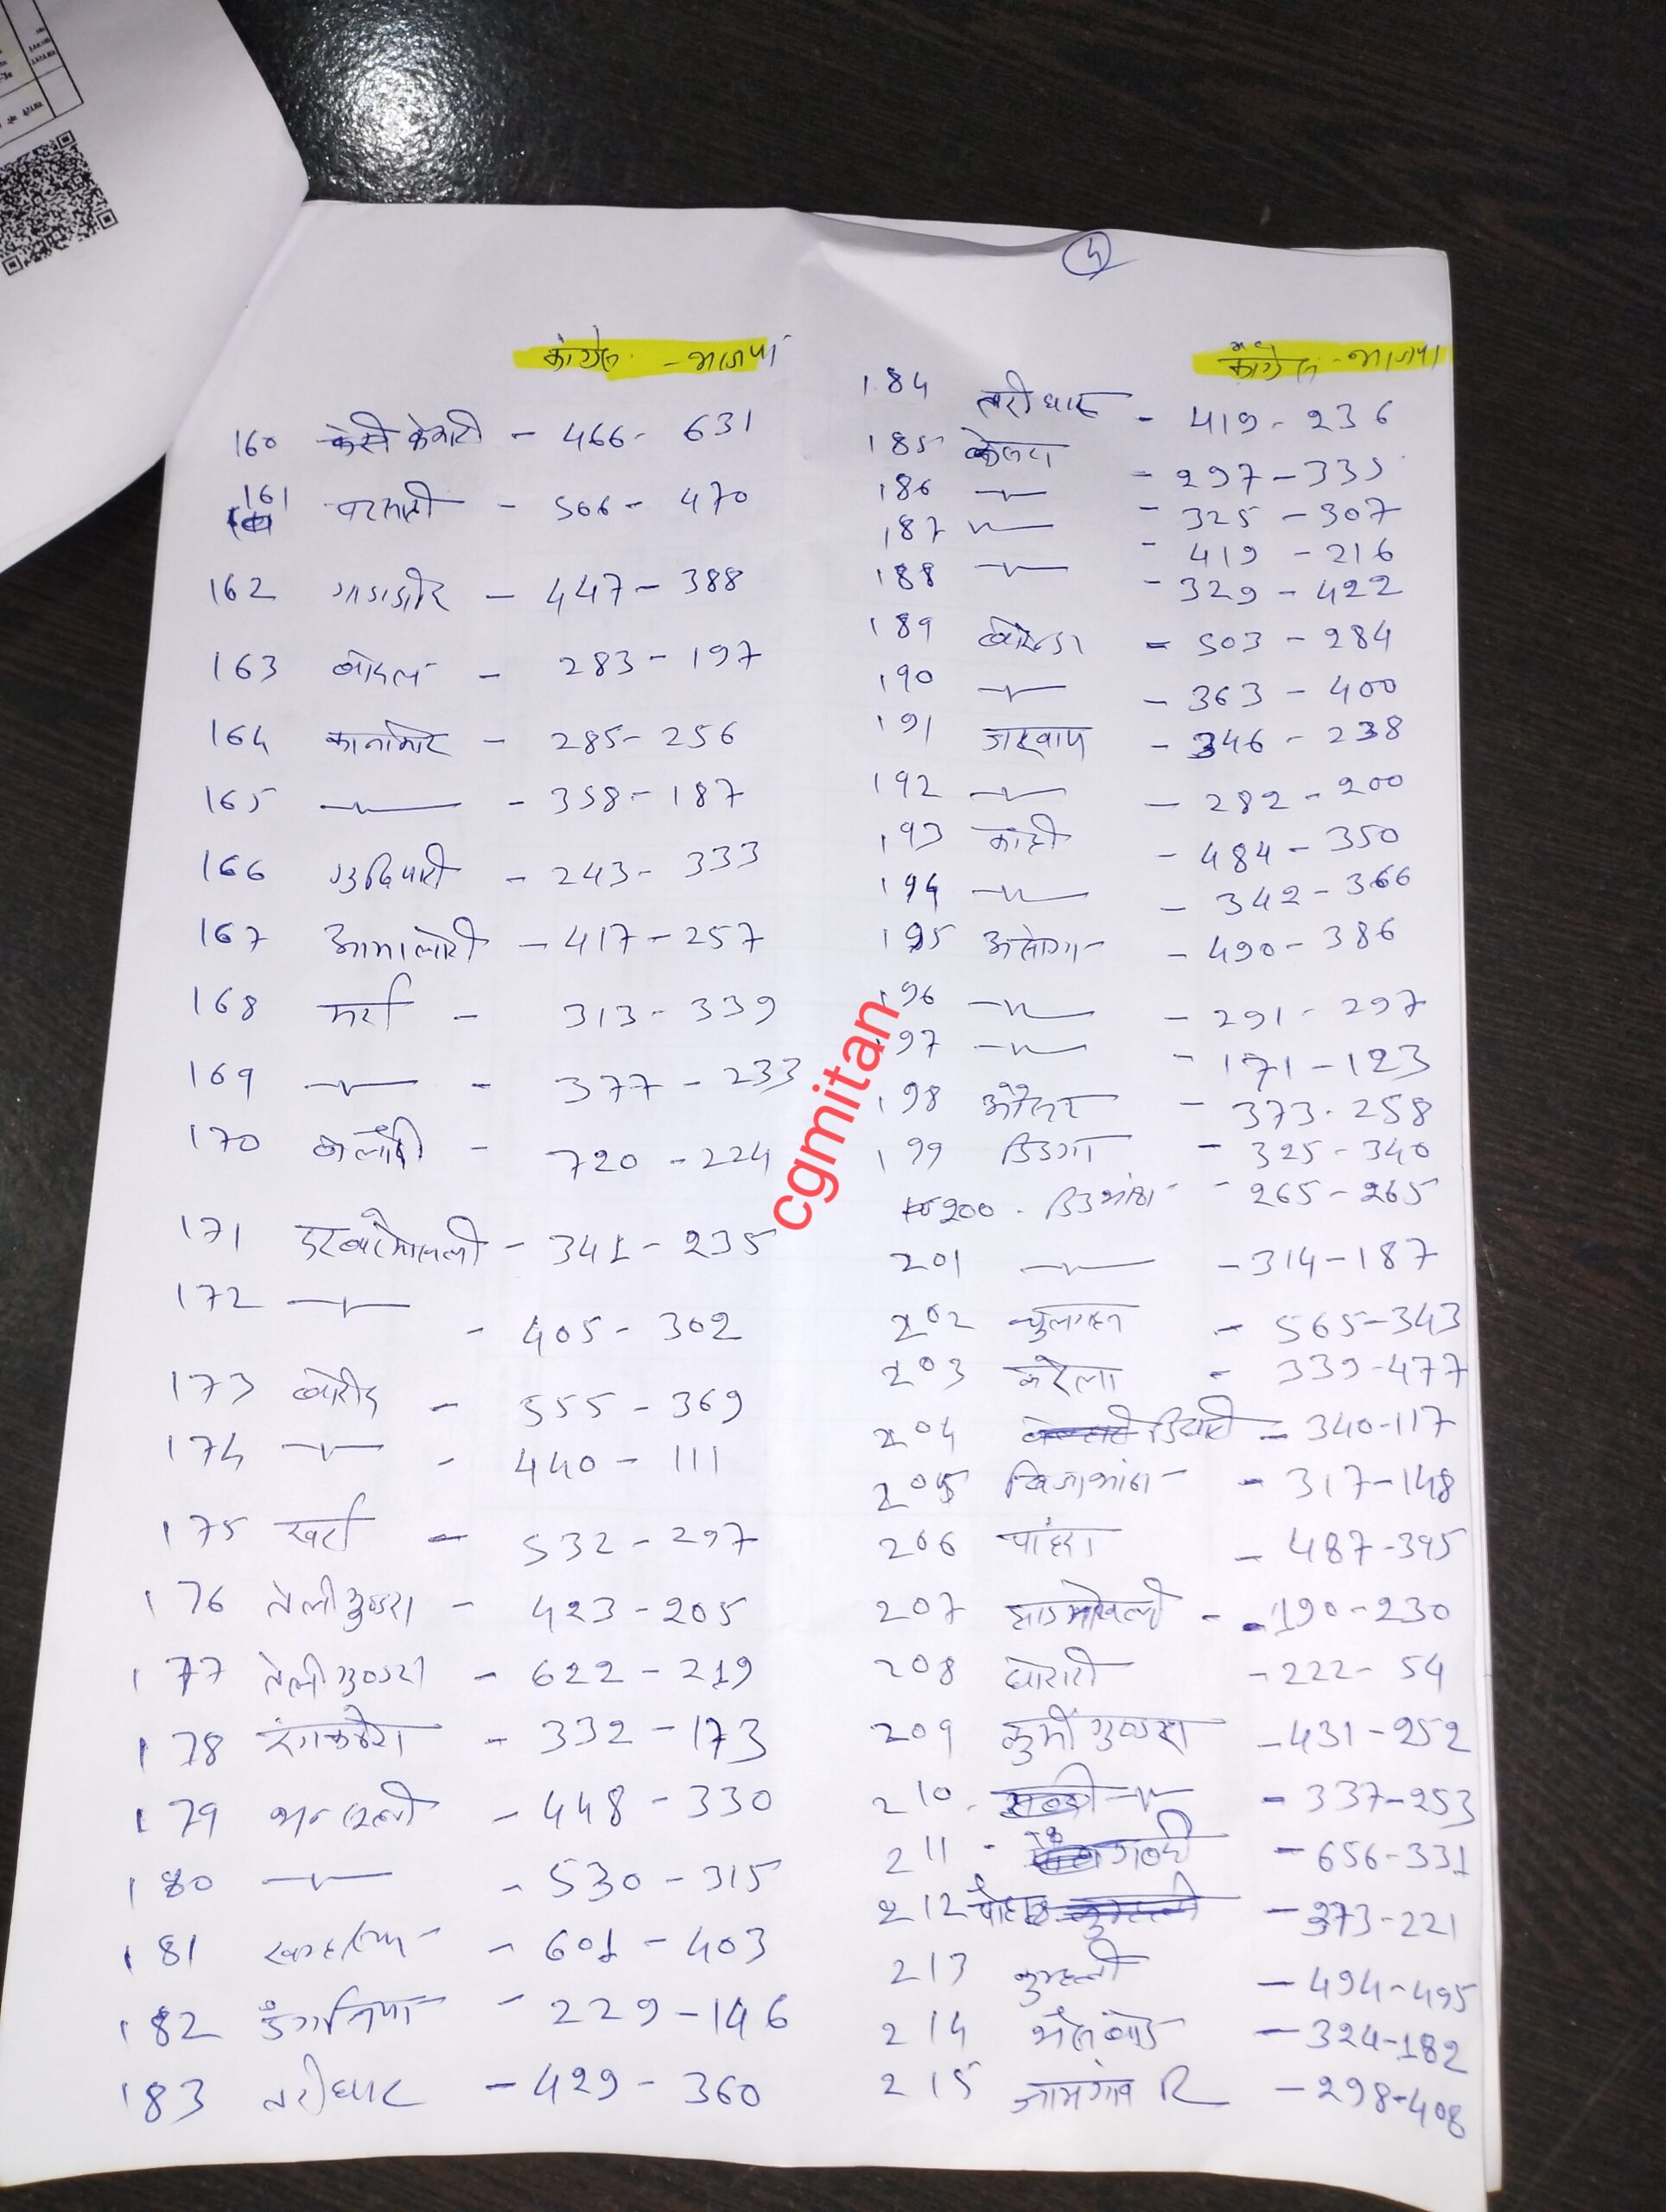 5
कांग्रेस - भाजपा
160 केवाटी - 466 - 631
161 - 506 - 470
162 - 447 - 388
163 - 283 - 197
164 - 285 - 256
165 -〃- - 358 - 187
166 गुढियारी - 243 - 333
167 आमालोरी - 417 - 257
168 मर्रा - 313 - 339
169 -〃- - 377 - 233
170 - 720 - 224
171 - 341 - 235
172 -〃- - 405 - 302
173 बोरीद - 555 - 369
174 -〃- - 440 - 111
175 खर्रा - 532 - 297
176 तेलीगुण्डरा - 423 - 205
177 तेलीगुण्डरा - 622 - 219
178 रंगकठेरा - 332 - 173
179 भनसुली - 448 - 330
180 -〃- - 530 - 315
181 - 601 - 403
182 डंगनिया - 229 - 146
183 तरीघाट - 429 - 360
कांग्रेस - भाजपा
184 तरीघाट - 419 - 236
185 - 297 - 335
186 -〃- - 325 - 307
187 -〃- - 419 - 216
188 -〃- - 329 - 422
189 बोरेन्दा - 503 - 284
190 -〃- - 363 - 400
191 - 346 - 238
192 -〃- - 282 - 200
193 कौही - 484 - 350
194 -〃- - 342 - 366
195 असोगा - 490 - 386
196 -〃- - 291 - 297
197 -〃- - 171 - 123
198 औसर - 373 - 258
199 डिडगा - 325 - 340
200 . डिडाभांठा - 265 - 265
201 -〃- - 314 - 187
202 चुलगहन - 565 - 343
203 करेला - 339 - 477
204 - 340 - 117
205 खिजाभांठा - 317 - 148
206 पाहंदा - 487 - 395
207 झाडमोखली - 190 - 230
208 घोरारी - 222 - 54
209 कुर्मीगुण्डरा - 431 - 252
210 -〃- - 337 - 253
211 - - 656 - 331
212 - 373 - 221
213 कुम्हली - 494 - 495
214 - 324 - 182
215 जामगांव R - 298 - 408
cgmitan